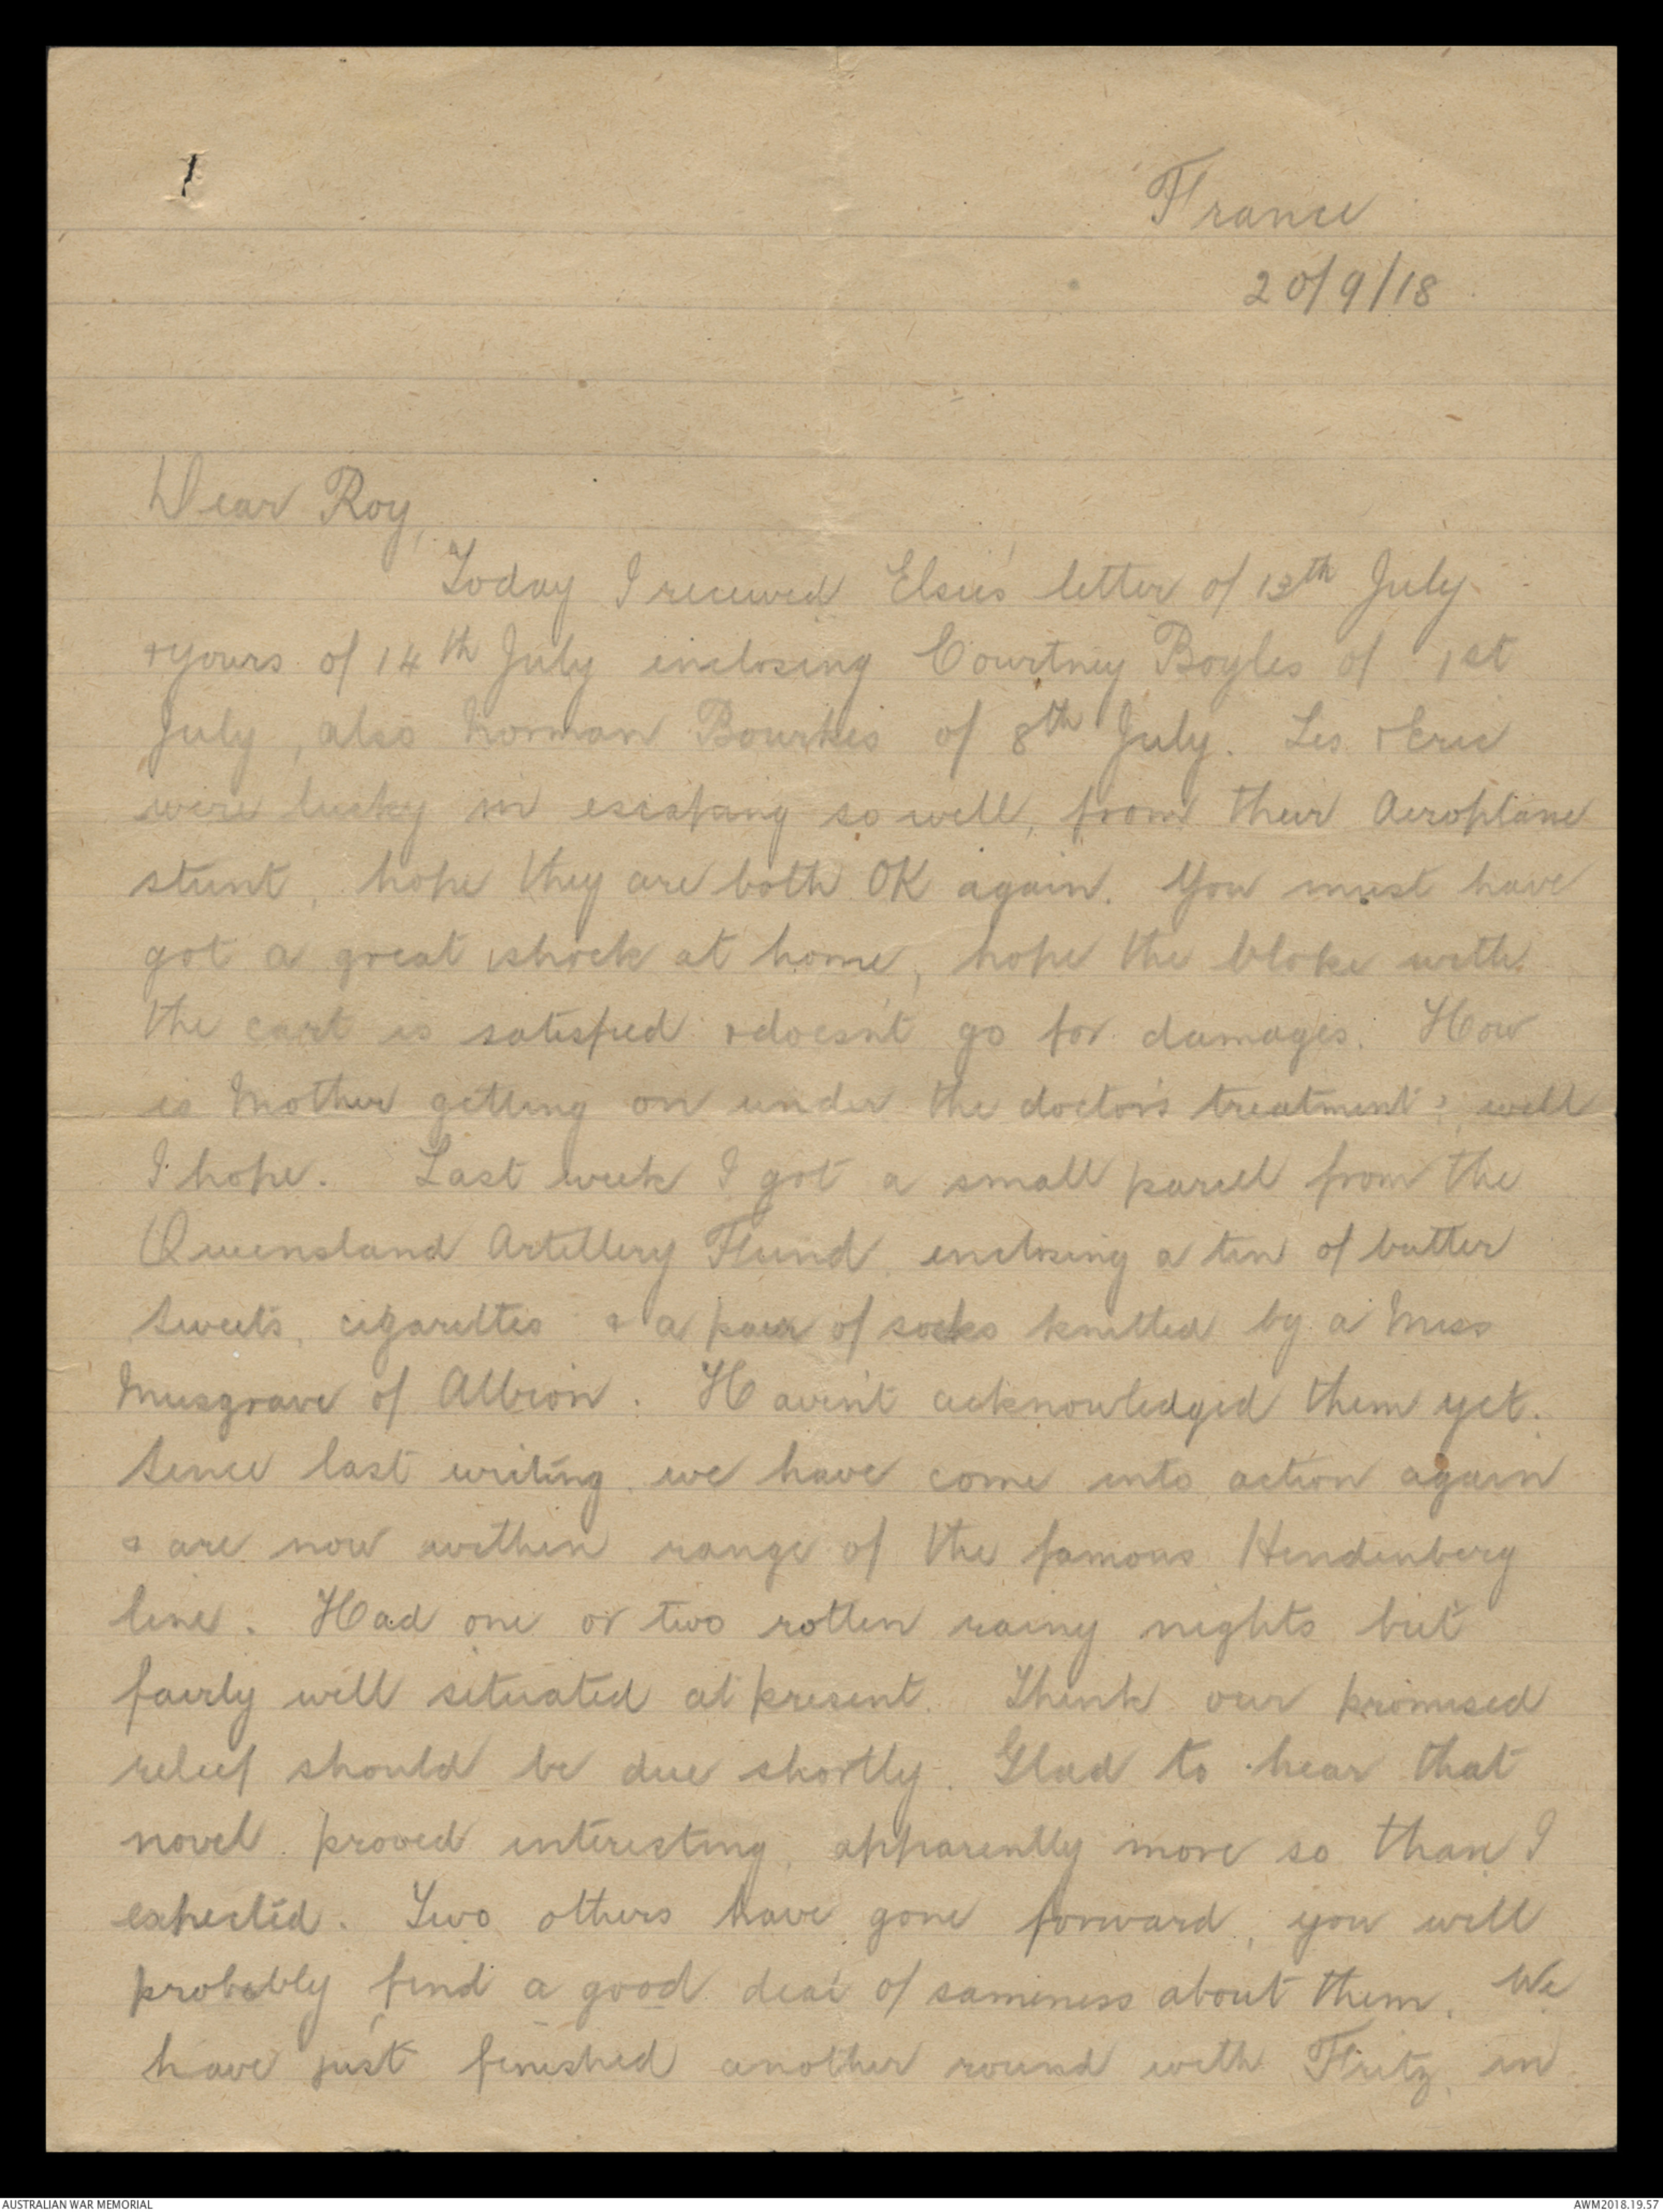 France
20/9/18
Dear Roy,
Today I received Elsie's letter of 13th July
+ yours of 14th July enclosing Courtney Boyles of 1st
July, also Norman Bourkes of 8th July. Les + Eric
were lucky in escaping so well, from their Aeroplane
stunt, hope they are both OK again. You must have
got a great shock at home, hope the bloke with
the cart is satisfied + doesn't go for damages. How
is Mother getting on under the doctor's treatment?, well
I hope. Last week I got a small parcel from the
Queensland Artillery Fund enclosing a tin of butter
sweets, cigarettes & a pair of socks knitted by a Miss
Musgrave of Albion. Haven't acknowledged them yet.
Since last writing we have come into action again
& are now within range of the famous Hindenberg
line. Had one or two rotten rainy nights but
fairly well situated at present. Think our promised
relief should be due shortly. Glad to hear that
novel proved interesting, apparently more so than I
expected. Two others have gone forward, you will
probably find a good deal of sameness about them. We
have just finished another round with Fritz, in
AUSTRALIAN WAR MEMORIAL
AWM2018.19.57